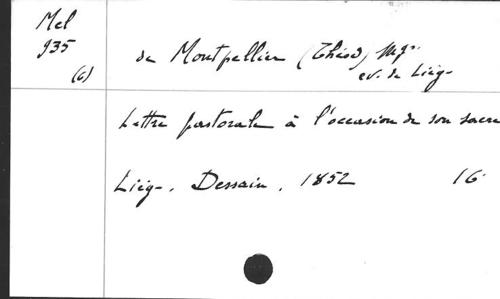 Mel
935
(6)
de Montpellier (Théod) Mgr.
ev. de Liég-
Lettre pastorale à l'occasion de son sacre
Liég-. Dessain. 1852 16